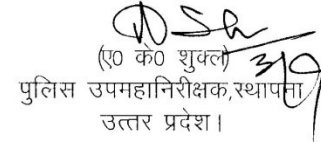 (ए0 के0 शुक्ल)
पुलिस उपमहानिरीक्षक,स्थापना
उत्तर प्रदेश।